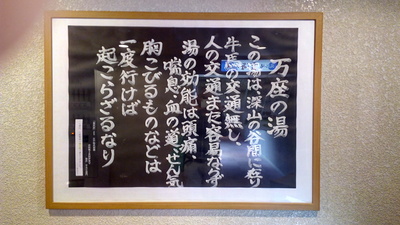 万座の湯
この湯は、深山の谷間に在り
牛馬の交通無し、
人の交通また容易ならず
湯の効能は頭痛、
喘息、血の道、せん気
胸こびるものなどは
一度行けば
起こらざるなり